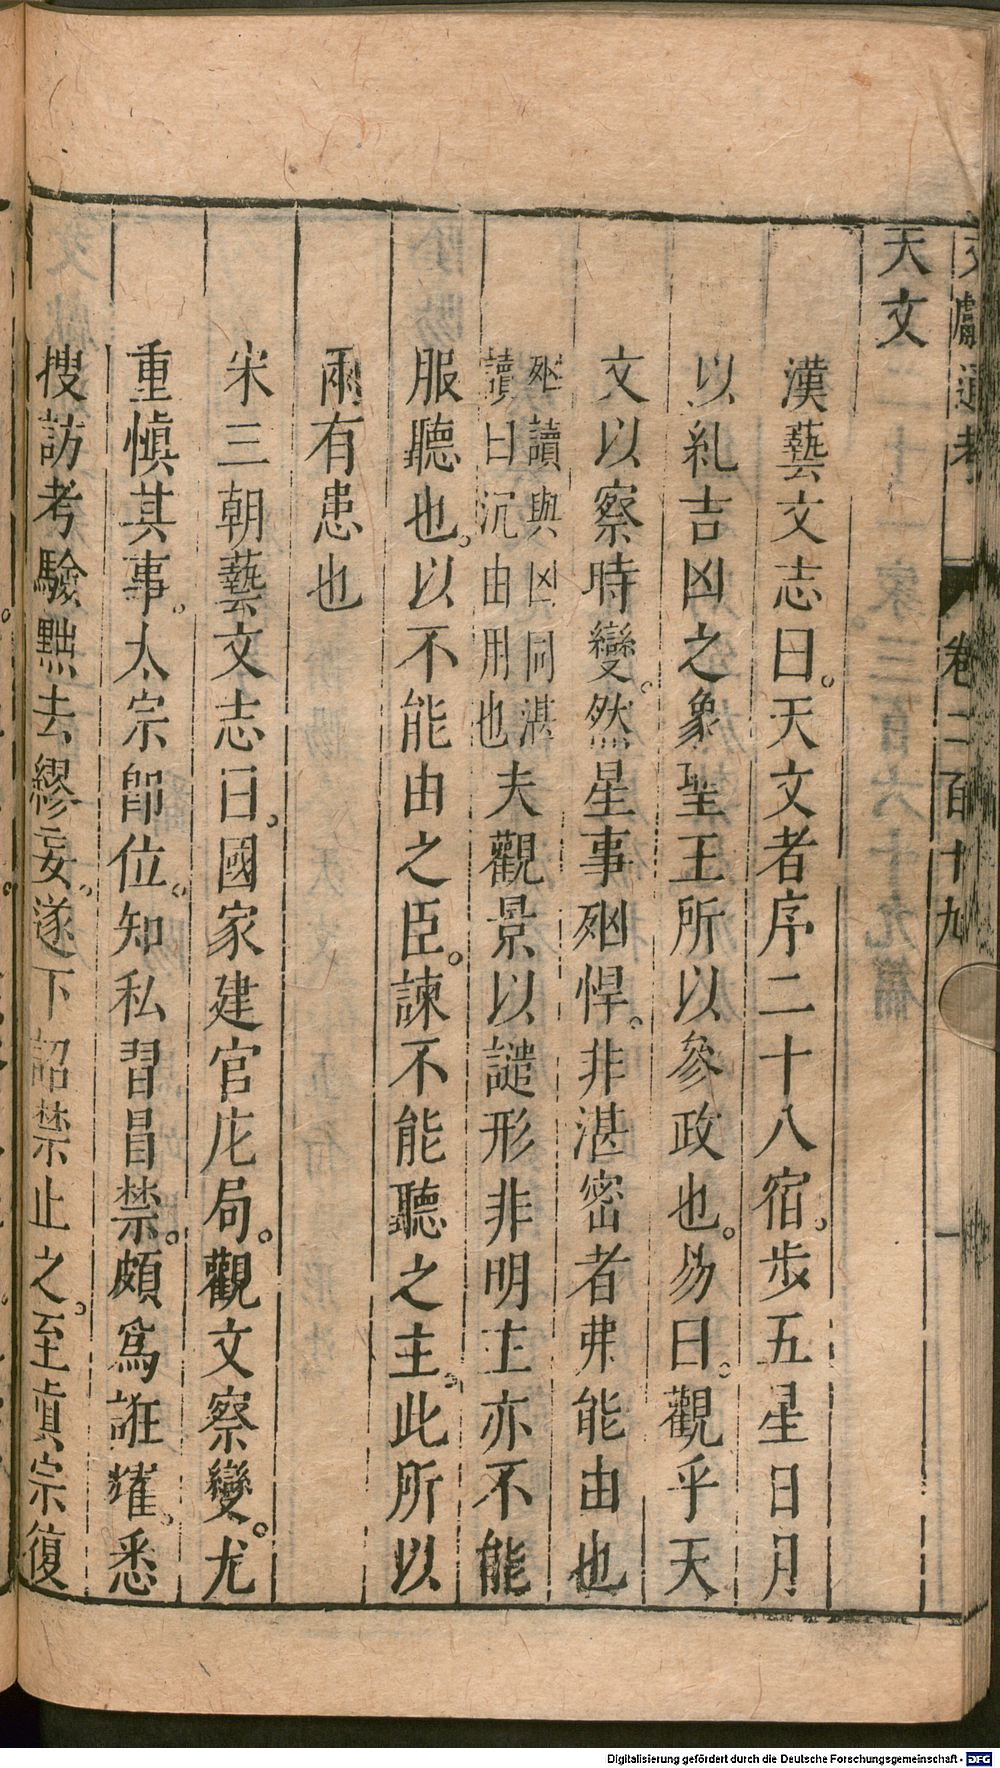 文獻通考 卷二百十九 一
天文
漢藝文志曰。天文者序二十八宿。步五星日月
以糺吉凶之象聖王所以參政也。易曰。觀乎天
文以察時變。然星事㓙悍。非湛密者弗能由也
㓙讀與凶同湛
讀曰沉由用也
夫觀景以譴形非明主亦不能
服聽也。以不能由之臣。諫不能聽之主。此所以
兩有患也
宋三朝藝文志曰。國家建官庀局。觀文察變。尤
重慎其事。太宗即位。知私習冒禁。頗爲誑耀。悉
搜訪考驗黜去繆妄。遂下詔禁止之。至眞宗復
Digitalisierung gefördert durch die Deutsche Forschungsgemeinschaft - DFG